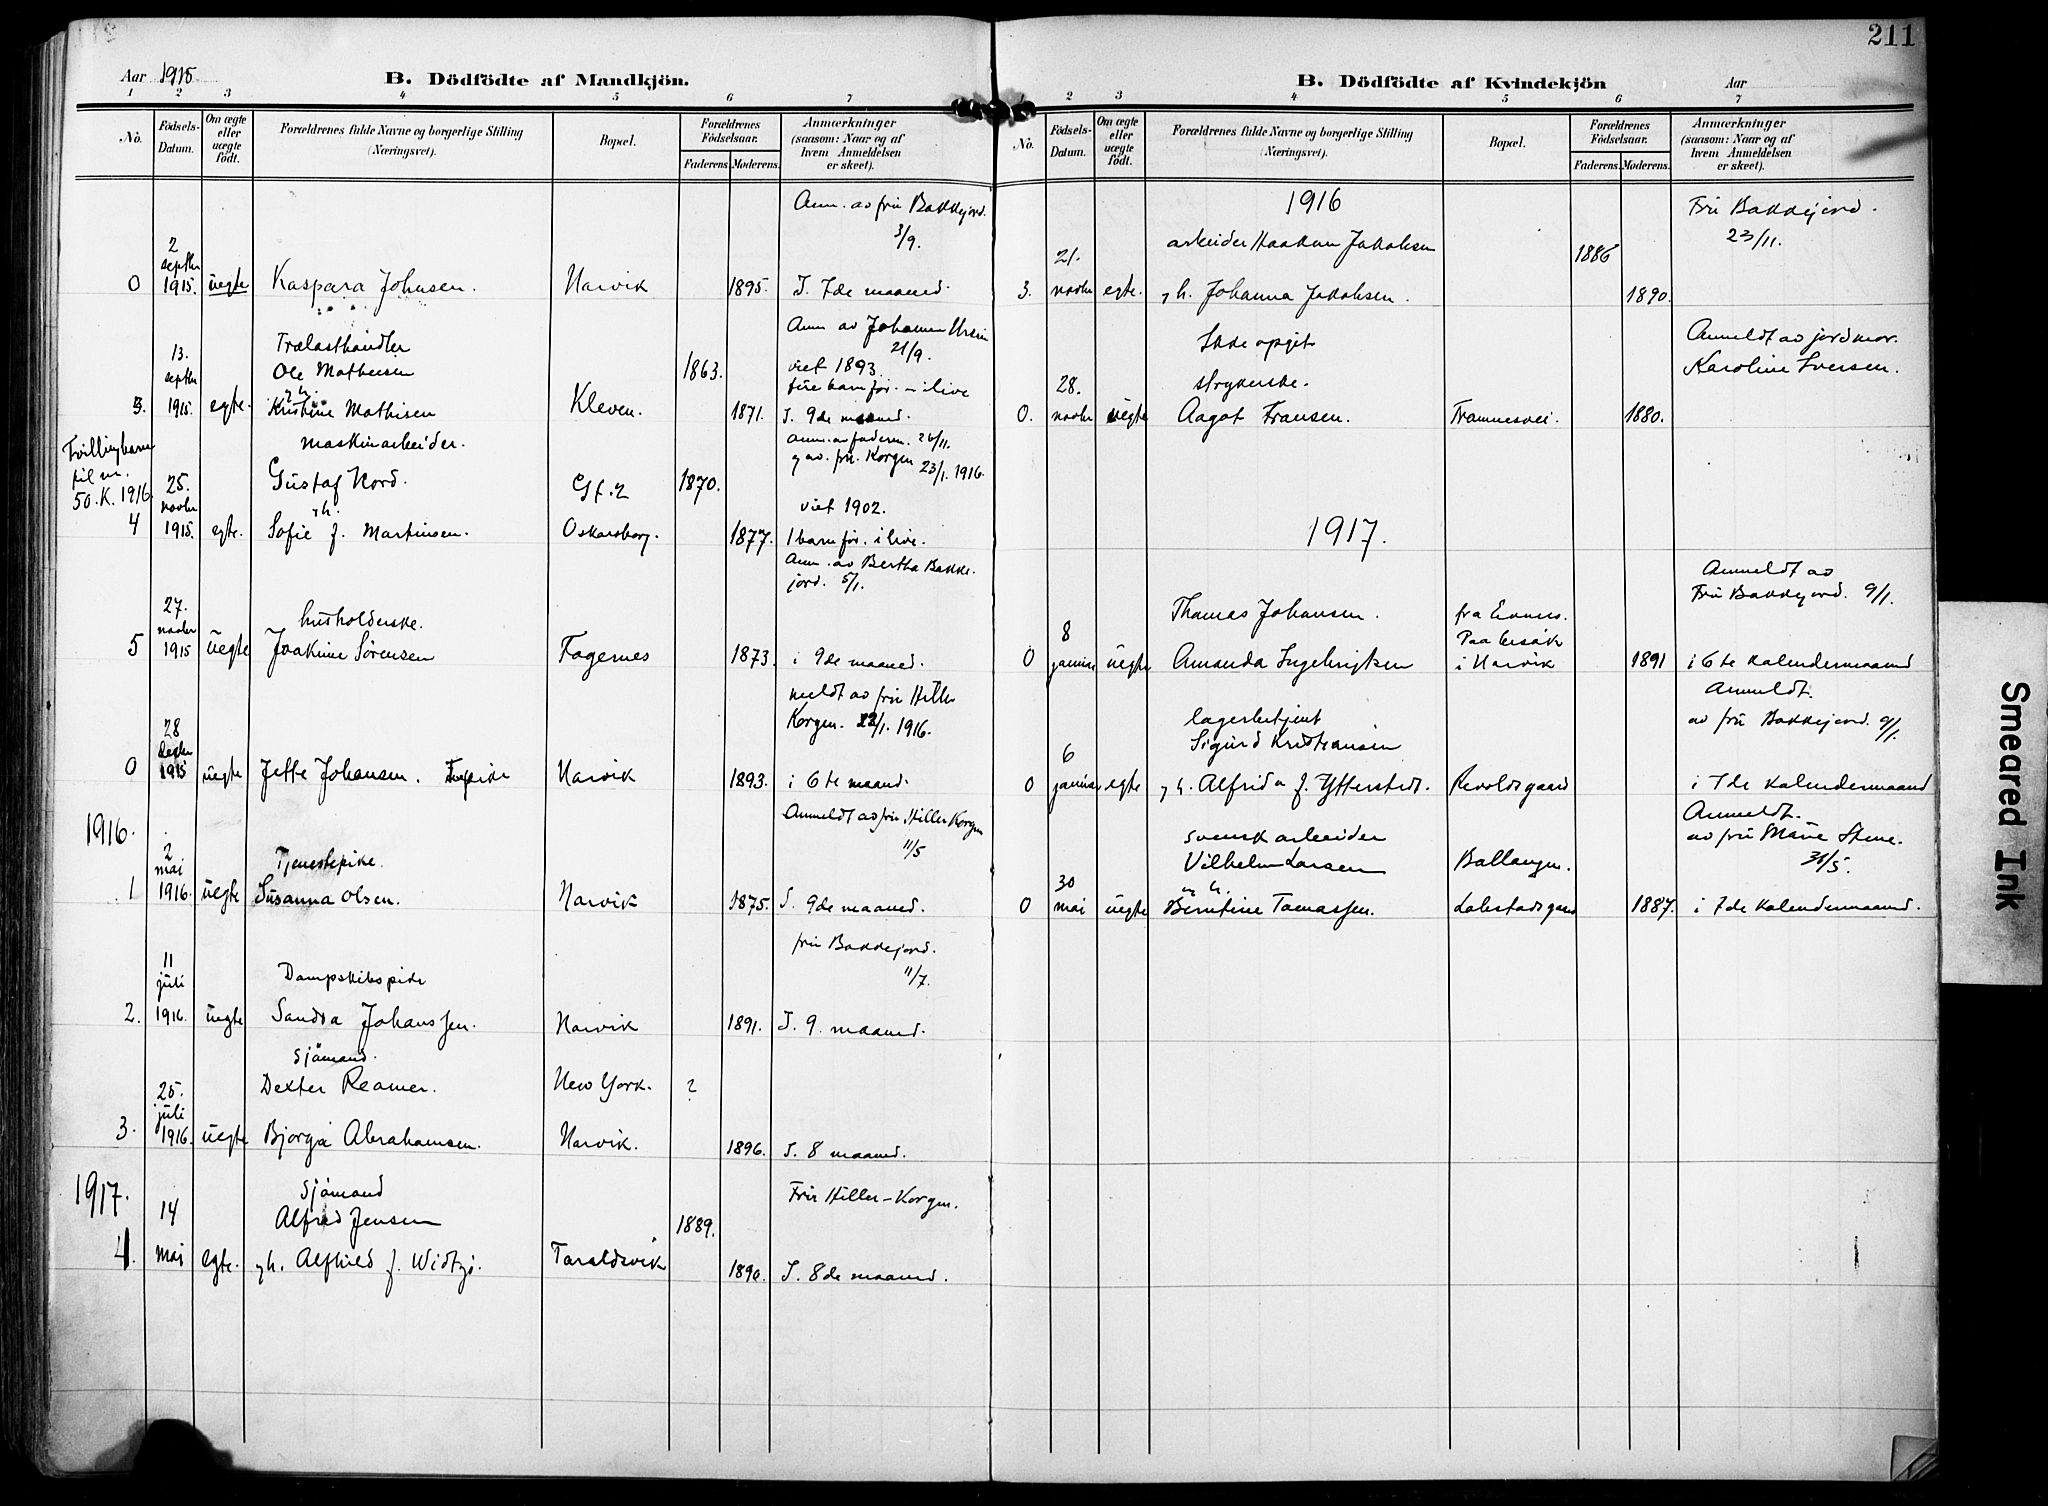 211
Aar 1915
B. Dödfödte af Mandkjön.
1 2 3 4 5 6 7
No.
Födsels-Datum.
Om ægte eller uægte födt.
Forældrenes fulde Navne og borgerlige Stilling (Næringsvei).
Bopæl.
Forældrenes Födselsaar.
Faderens. Moderens.
Anmærkninger (saasom: Naar og af hvem Anmeldelsen er skeet).
Anm. av fru Bakkejord.
3/9.
2
septbr
0 1915. uegte Kaspara Johnsen. Narvik 1895. I. 7de maaned.
Anm av Johanne Ursin
21/9.
13. Trælasthandler
septbr Ole Mathisen 1863. viet 1893.
3. 1915. egte. Kristine Mathisen Kleven. 1871. I. 9de maaned.
maskinarbeider. anm. av faderen. 26/11.
Tvillingbarn til nr. 50. K. 1916.
g av. fru. Korgen 23/1. 1916.
25. Gustaf Nord. Gf. 2 1870.
novbr viet 1902.
4 1915. egte. Sofie f. Martinsen. Oskarsborg. 1877. 1 barn før. i live.
Anm. av Bertha Bakkejord. 5/1.
27. husholderske.
novbr
5 1915 uegte Joakine Sørensen Fagernes 1873. i 9de maaned.
meldt av fru Hiller
Korgen. 22/1. 1916.
28
Desbr
0 1915 uegte Jette Johansen. Narvik 1893. i 6te maaned.
1916.
Anmeldt av fru Hiller Korgen
11/5
2
mai Tjenestepike.
1 1916. uegte Susanna Olsen. Narvik 1875. I. 9de maaned.
fru Bakkejord.
11/7.
11
juli Dampskibspike
2. 1916. uegte Sandra Johanssen. Narvik 1891. I. 9. maaned.
Sjömand.
25. Dexter Reamer. New York. ?
juli
3. 1916. uegte Bjorga Abrahamsen. Narvik. 1896. I. 8 maaned.
1917.
Sjömand Fru Hiller-Korgen.
14 Alfred Jensen 1889.
4. mai egte. g h. Alfhild f. Widtzö. Taraldsvik 1890. I. 8de maaned.
B. Dödfödte af Kvindekjön
Aar
2 3 4 5 6 7
No.
Födsels-Datum.
Om ægte eller uægte födt.
Forældrenes fulde Navne og borgerlige Stilling (Næringsvei).
Bopæl.
Forældrenes Födselsaar.
Faderens. Moderens.
Anmærkninger (saasom: Naar og af hvem Anmeldelsen er skeet).
1916 Fru Bakkejord.
23/11.
21. arbeider Haakon Jakobsen 1886
3. novbr egte. g h. Johanna Jakobsen. 1890.
Ikke opgit Anmeldt av jordmor.
Karoline Iversen.
28. strykerske.
0. novbr uegte Aagot Fransen. Framnesvei. 1880.
1917.
Anmeldt av
Fru Bakkejord. 9/1.
Thomas Johansen. fra Evenes.
8 Paa besök
0 januar uegte Amanda Ingebrigtsen i Narvik 1891 i 6te kalendermaaned
Anmeldt.
av fru Bakkejord. 9/1.
lagerbetjent
6 Sigurd Kristiansen
0 januar egte g h. Alfrida f. Ytterstedt. Revoldsgaard i 7de kalendermaaned
Anmeldt.
av fru Marie Stene.
31/5.
svensk arbeider
Vilhelm Larsen Ballangen.
30
0 mai uegte Berntine Tomassen. 1887. i 7de kalendermaaned.
Smeared Ink